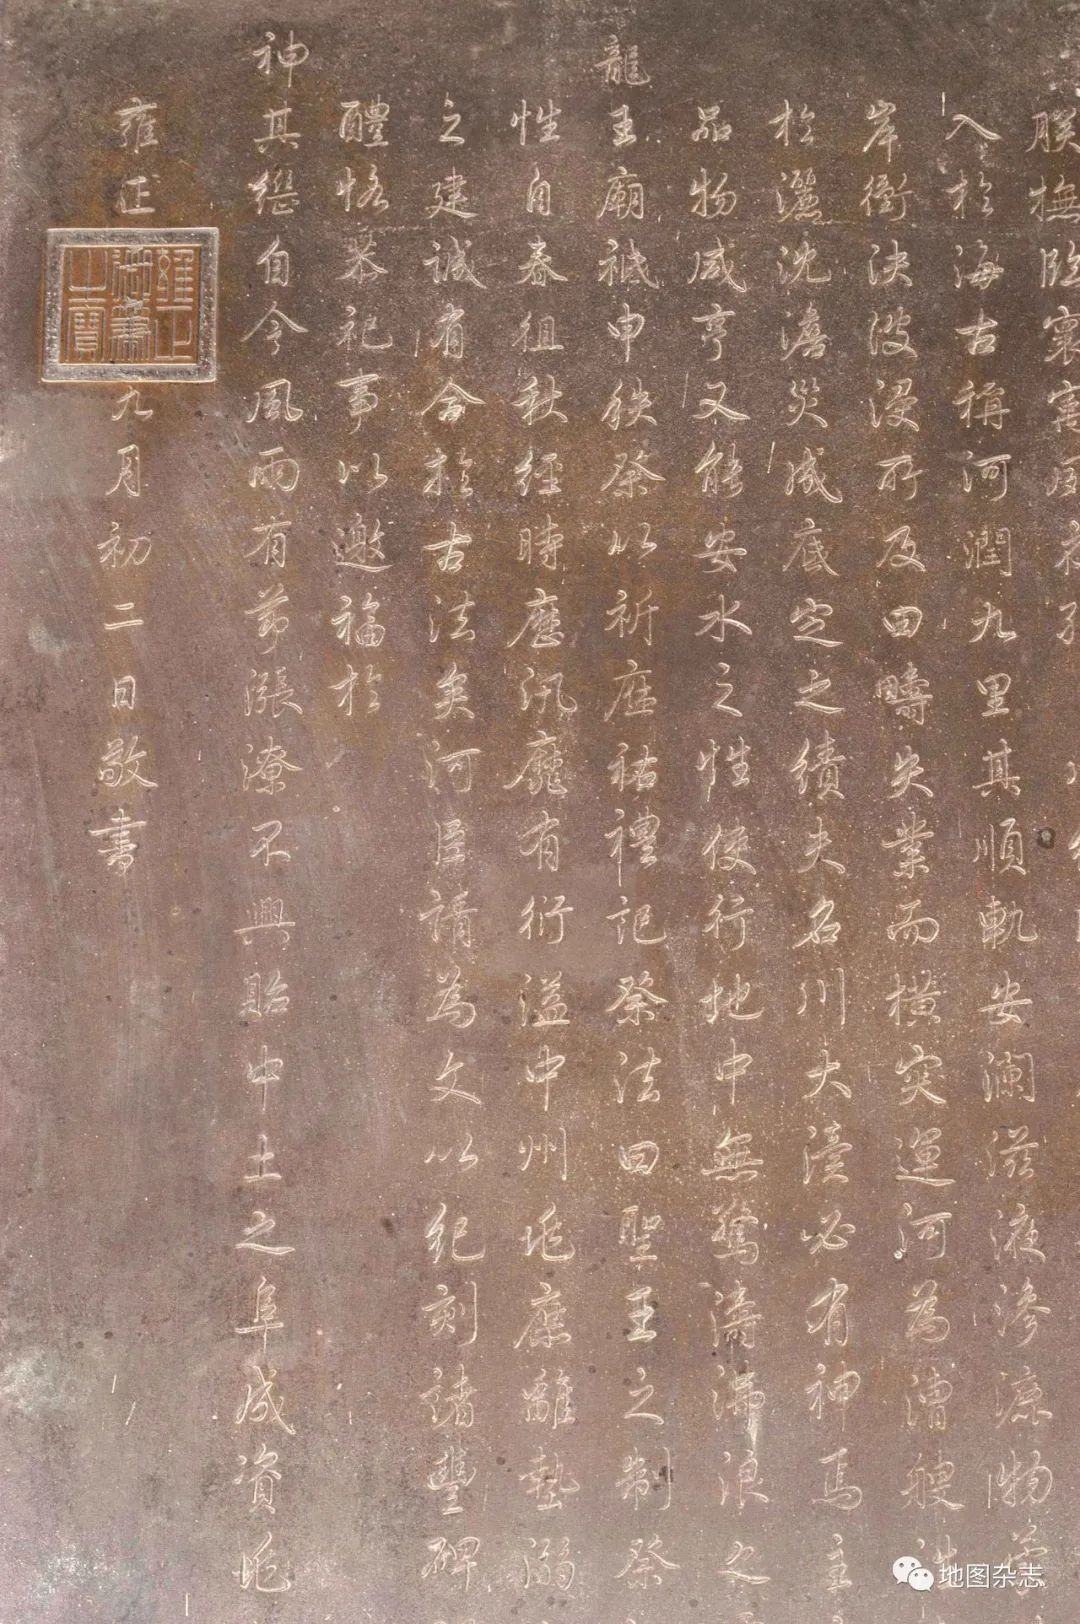 朕撫臨寰寓夙夜孜
入於海古稱河潤九里其順軌安瀾滋液滲漉物蒙
岸衝決波浸所及田疇失業而橫突運河為漕艘
於灑沈澹災成底定之績夫名川大瀆必有神焉主
品物咸亨又能安水之性使行地中無驚濤沸浪之
龍王廟祗申秩祭以祈庥祐禮記祭法曰聖王之制祭
性自春徂秋經時歷汛靡有衍溢中州兆庶離墊溺
之建誠有合於古法矣河臣請為文以紀刻諸豐碑
醴恪恭祀事以邀福於
神其繼自今風雨有節漲潦不興貽中土之阜成資兆
雍正九月初二日敬書
雍正御筆之寶
地图杂志